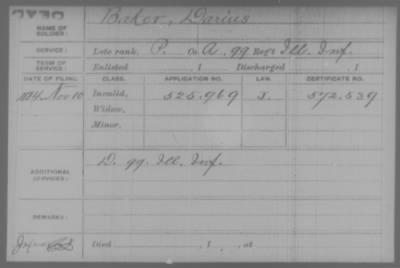 NAME OF SOLDIER: Baker, Darius
SERVICE: Late rank, P. Co. A, 99 Reg't Ill. Inf.
TERM OF SERVICE: Enlisted , 1 Discharged , 1
DATE OF FILING. CLASS. APPLICATION NO. LAW. CERTIFICATE NO.
1884 Nov 10 Invalid, 525.969 572.539
Widow,
Minor.
ADDITIONAL SERVICES: D. 99 Ill. Inf.
REMARKS:
Died , 1 , at